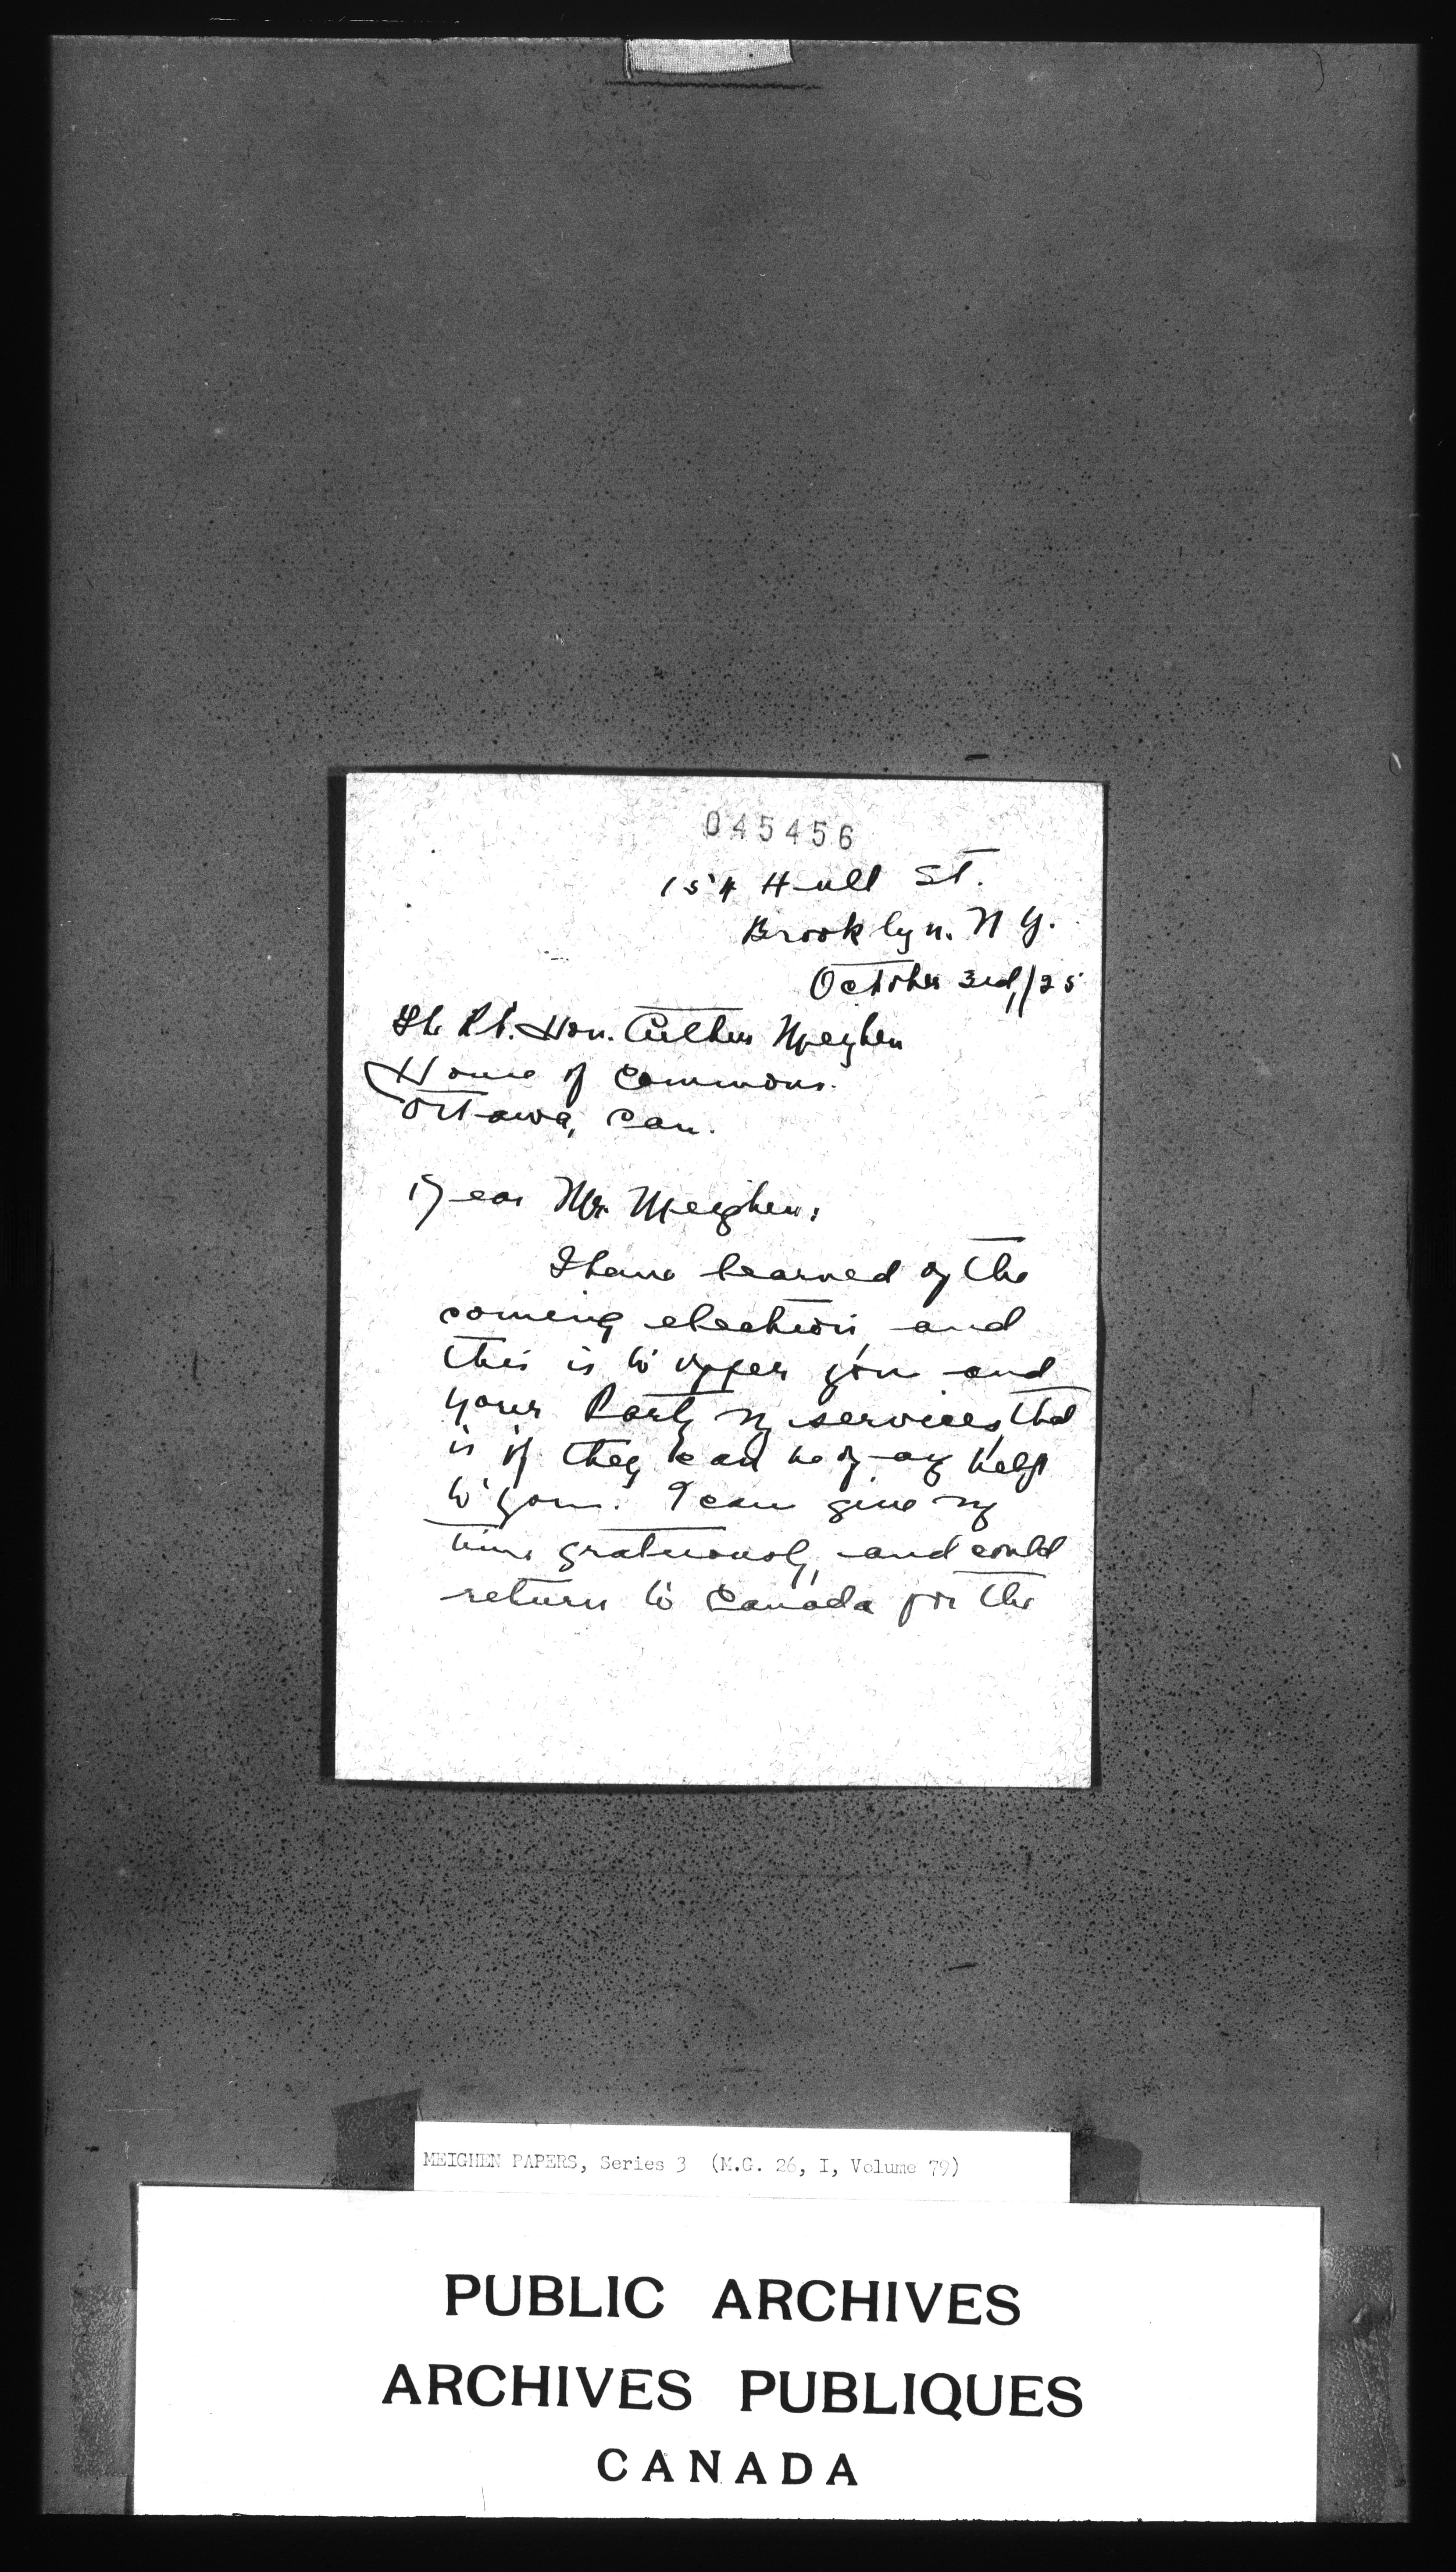 045456
154 Hull St.
Brooklyn. N Y.
October 3rd,/25
The Rt. Hon. Arthur Meighen
House of Commons.
Ottawa, Can.
Dear Mr. Meighen:
I have learned of the
coming election and
this is to offer you and
your Party my services, that
is if they can be of any help
to you. I can give my
time gratuously, and could
return to Canada for the
MEIGHEN PAPERS, Series 3 (M.G. 26, I, Volume 79)
PUBLIC ARCHIVES
ARCHIVES PUBLIQUES
CANADA